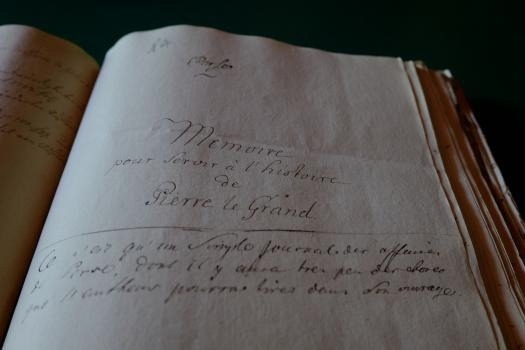 Memoire
pour servir à l'histoire
de
Pierre le Grand
Ce n'est qu'un simple journal des affaires
de Perse, dont il y aura tres peu de choses
que l'autheur pourra tirer dans son ouvrage.